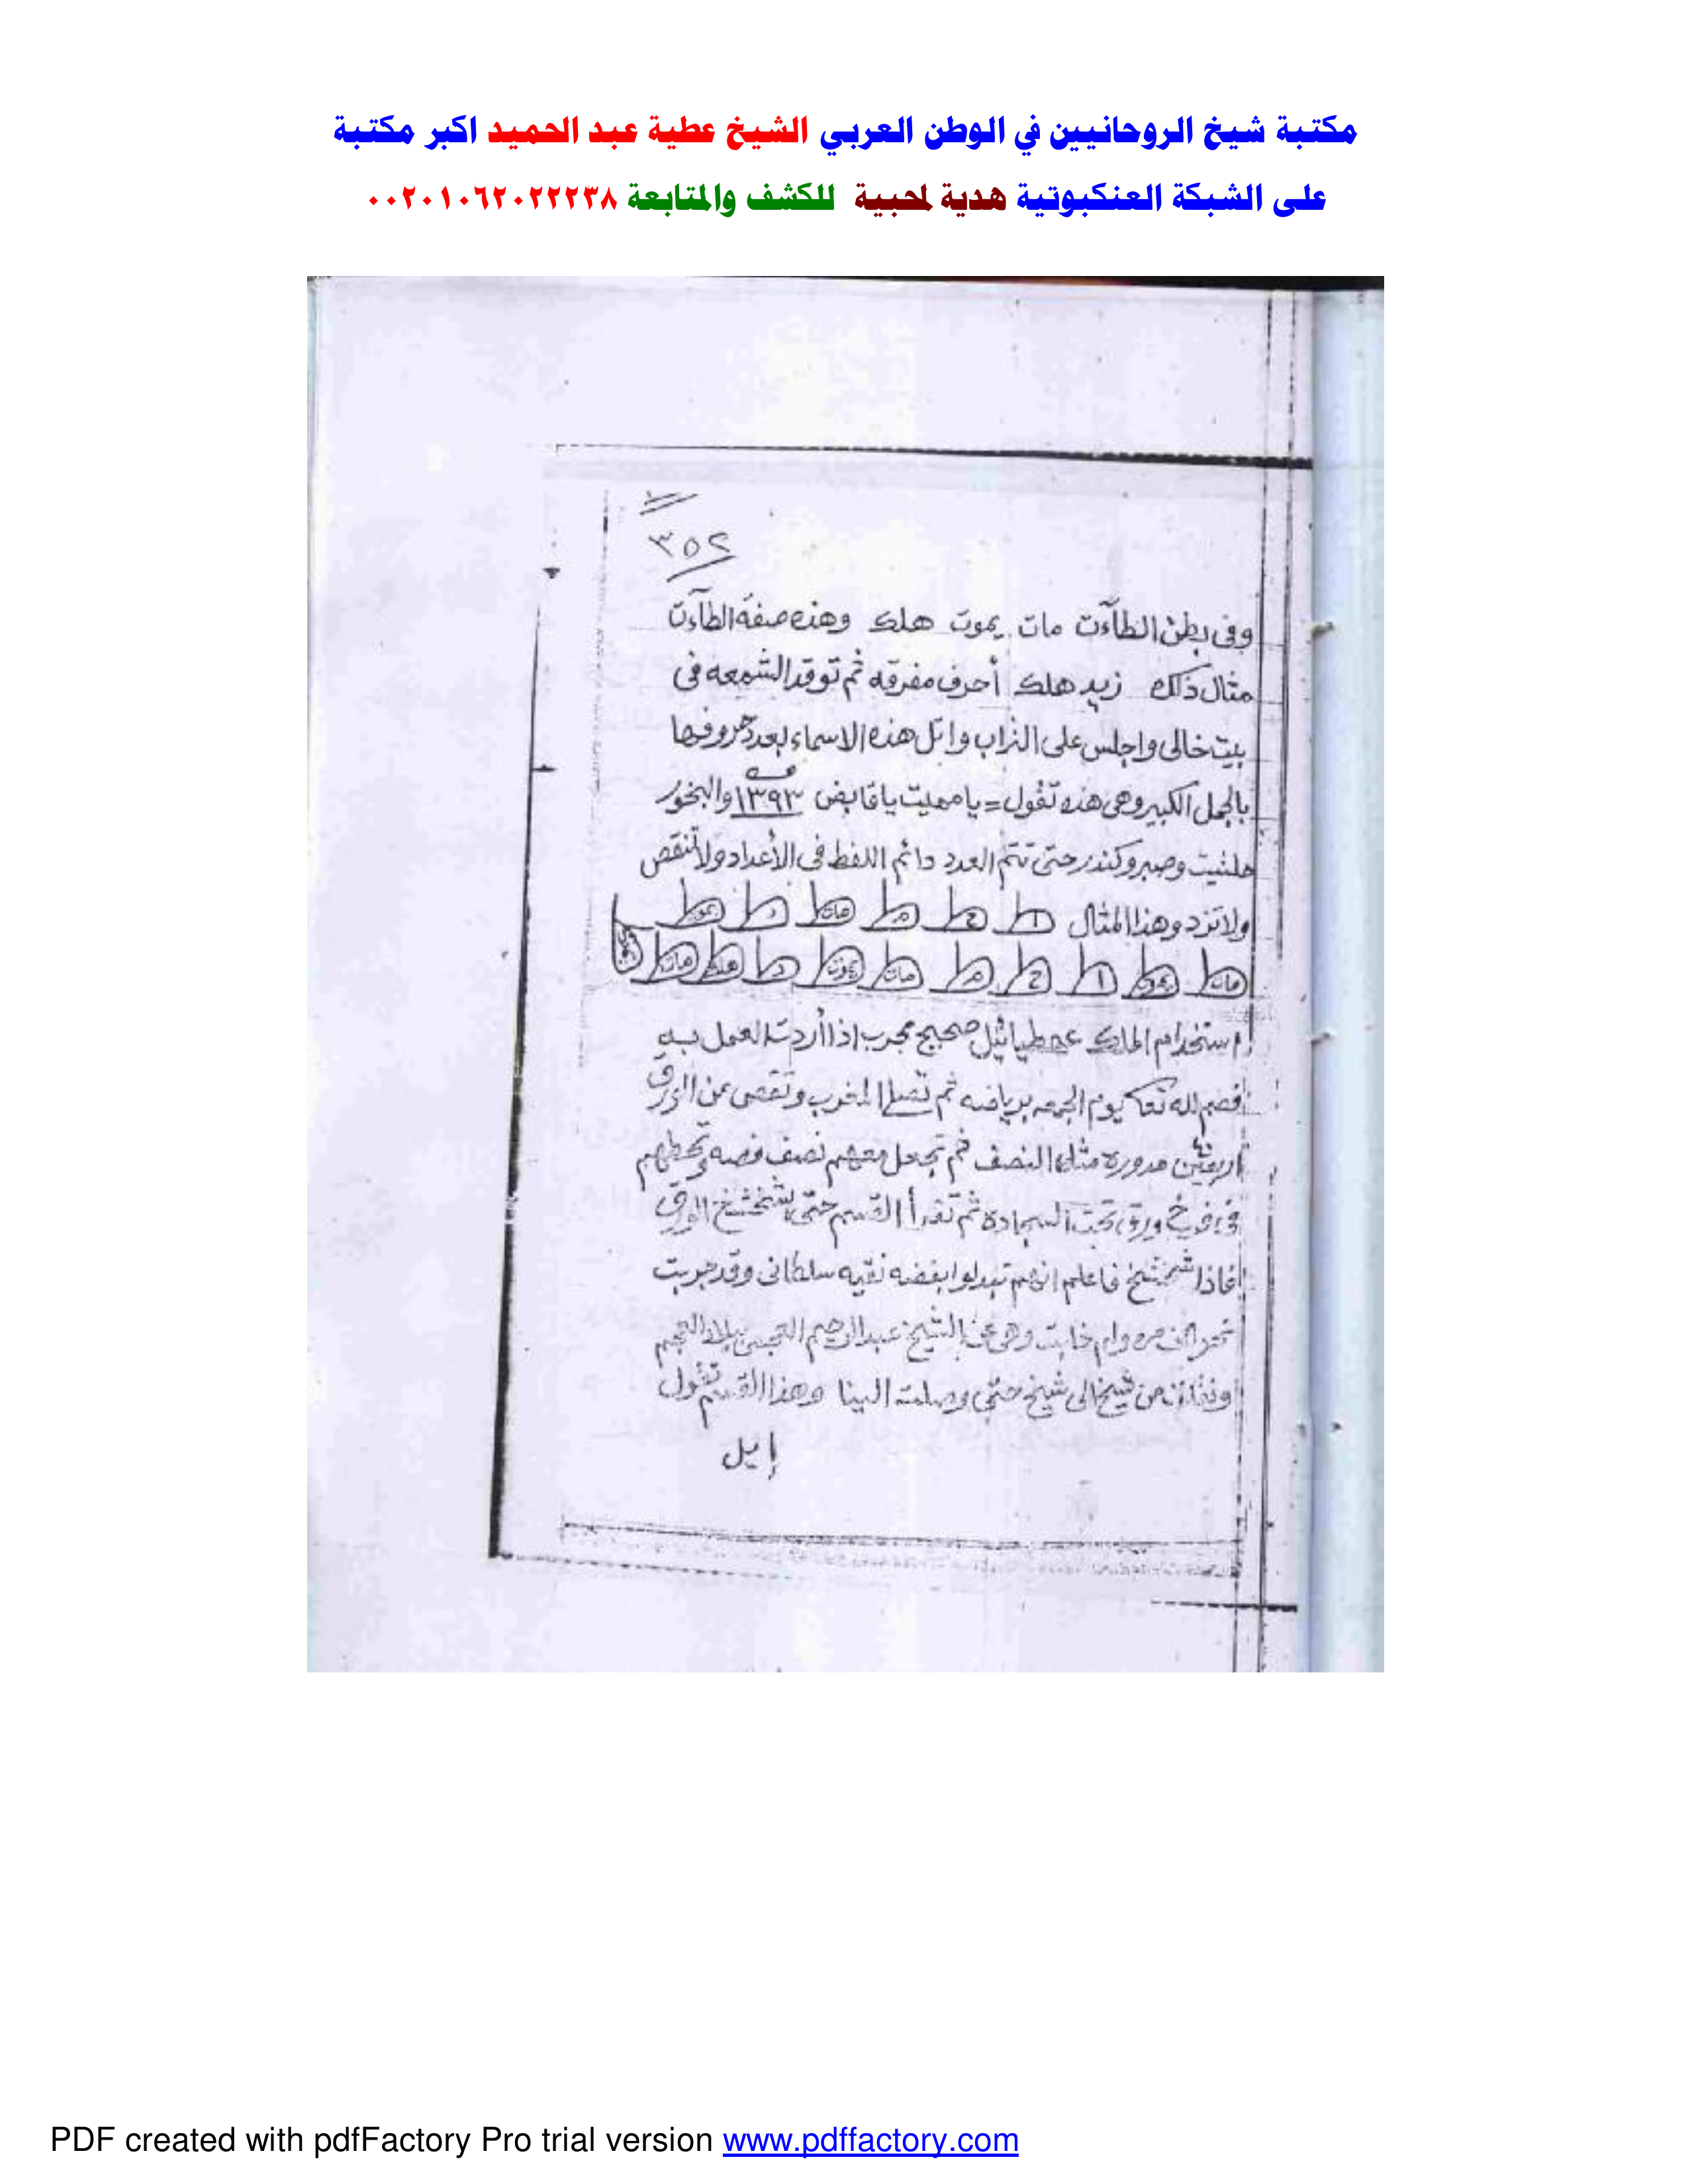 مكتبة شيخ الروحانيين في الوطن العربي الشيخ عطية عبد الحميد اكبر مكتبة
على الشبكة العنكبوتية هدية لمحبية للكشف والمتابعة ٠٠٢٠١٠٦٢٠٢٢٢٣٨
٣٥٢
وفى بطن الطاآت مات يموت هلك وهذه صفة الطاآت
مثال ذلك زيد هلك أحرف مفرقه ثم توقد الشمعه فى
بيت خالى واجلس على التراب واتل هذه الاسماء بعدد حروفها
بالجمل الكبير وهى هذه تقول = يا مميت يا قابض ١٣٩٣ والبخور
حلتيت وصبر وكندر حتى تتم العدد دائم اللفظ فى الأعداد ولا تنقص
ولا تزد وهذا المثال
استخدام الملك عطيائيل صحيح مجرب اذا أردت العمل به
فصم لله يوم الجمعه برياضه ثم تصلى المغرب وتقص من الورق
أربعين مدوره مثل النصف ثم تجعل معهم نصف فضه وتحطهم
فى فرخ ورق تحت السجاده ثم تقرأ القسم حتى يشخشخ الورق
فاذا شخشخ فاعلم انهم تبدلوا بفضه نقيه سلطانى وقد جربت
الف مره ولم خابت وهى عن الشيخ عبد الرحيم ببلاد العجم
من شيخ الى شيخ حتى وصلت الينا وهذا القسم تقول
إيل
PDF created with pdfFactory Pro trial version www.pdffactory.com